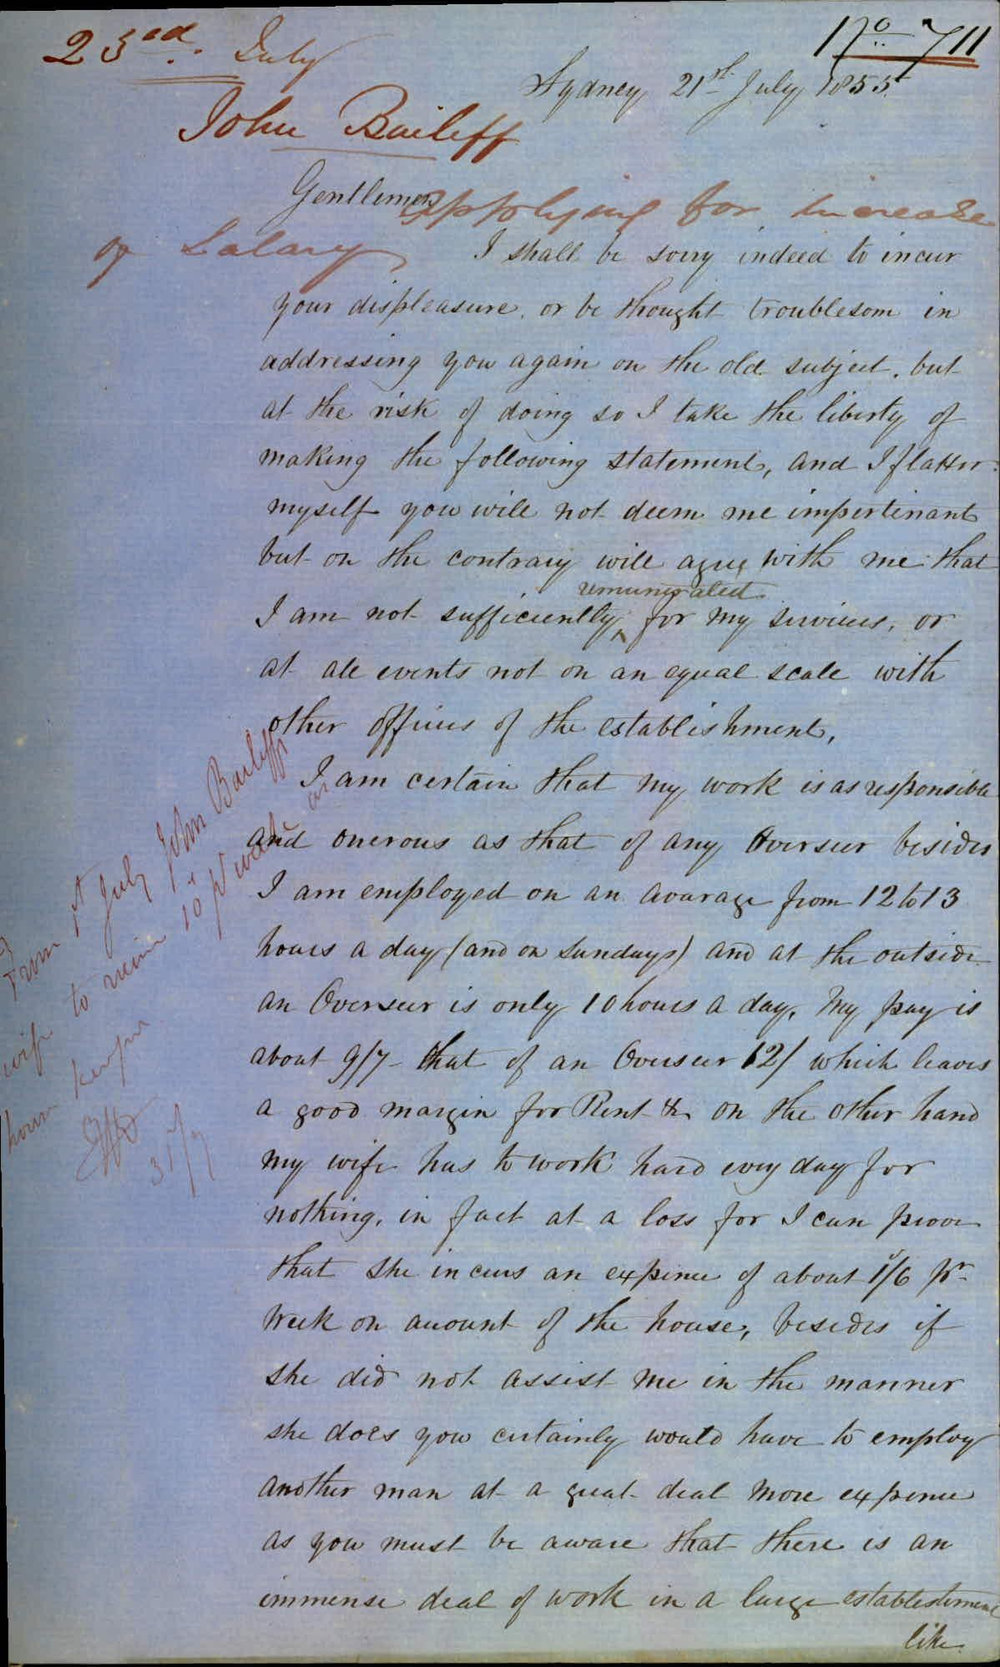 23rd. July
No 711
Sydney 21st July 1855
John Bailiff
Gentlemen
applying for increase
of Salary
I shall be sorry indeed to incur
your displeasure, or be thought troublesom in
addressing you again on the old subject, but
at the risk of doing so I take the liberty of
making the following statement, and I flatter
myself you will not deem me impertinant
but on the contrary will agree with me that
remunerated
I am not sufficiently ^ for my services, or
at all events not on an equal scale with
other offices of the establishment,
I am certain that my work is as responsible
and onerous as that of any Overseer besides
I am employed on an avarage from 12 to 13
hours a day (and on Sundays) and at the outside
an Overseer is only 10 hours a day, My pay is
about 9/7 - that of an Overseer 12/ which leaves
a good margin for Rent &c on the other hand
my wife has to work hard every day for
nothing, in fact at a loss for I can proove
that she incurs an expence of about 1/6 pr
Week on account of the house, besides if
she did not assist me in the manner
she does you certainly would have to employ
another man at a great deal more expence
as you must be aware that there is an
immense deal of work in a large establishment
like
From 1st July John Bailiff's
wife to receive 10/ pr week as
house keeper
31/7